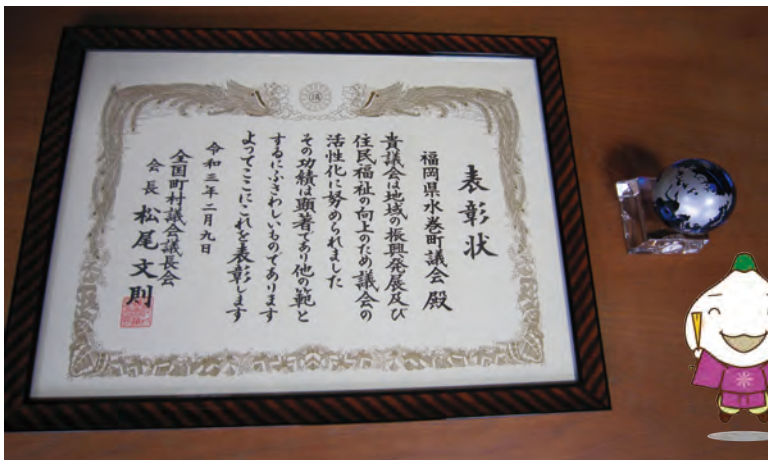 表彰状
福岡県水巻町議会殿
貴議会は地域の振興発展及び
住民福祉の向上のため議会の
活性化に努められました
その功績は顕著であり他の範と
するにふさわしいものであります
よってここにこれを表彰します
令和三年二月九日
全国町村議会議長会
会長 松尾文則